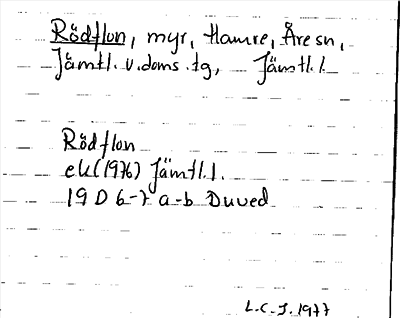 Rödflon, myr, Hamre, Åre sn,
Jämtl. v. doms. tg, Jämtl. l.
Rödflon
ek (1976) Jämtl. l.
19 D 6-7 a-b Duved
L.C.J. 1977